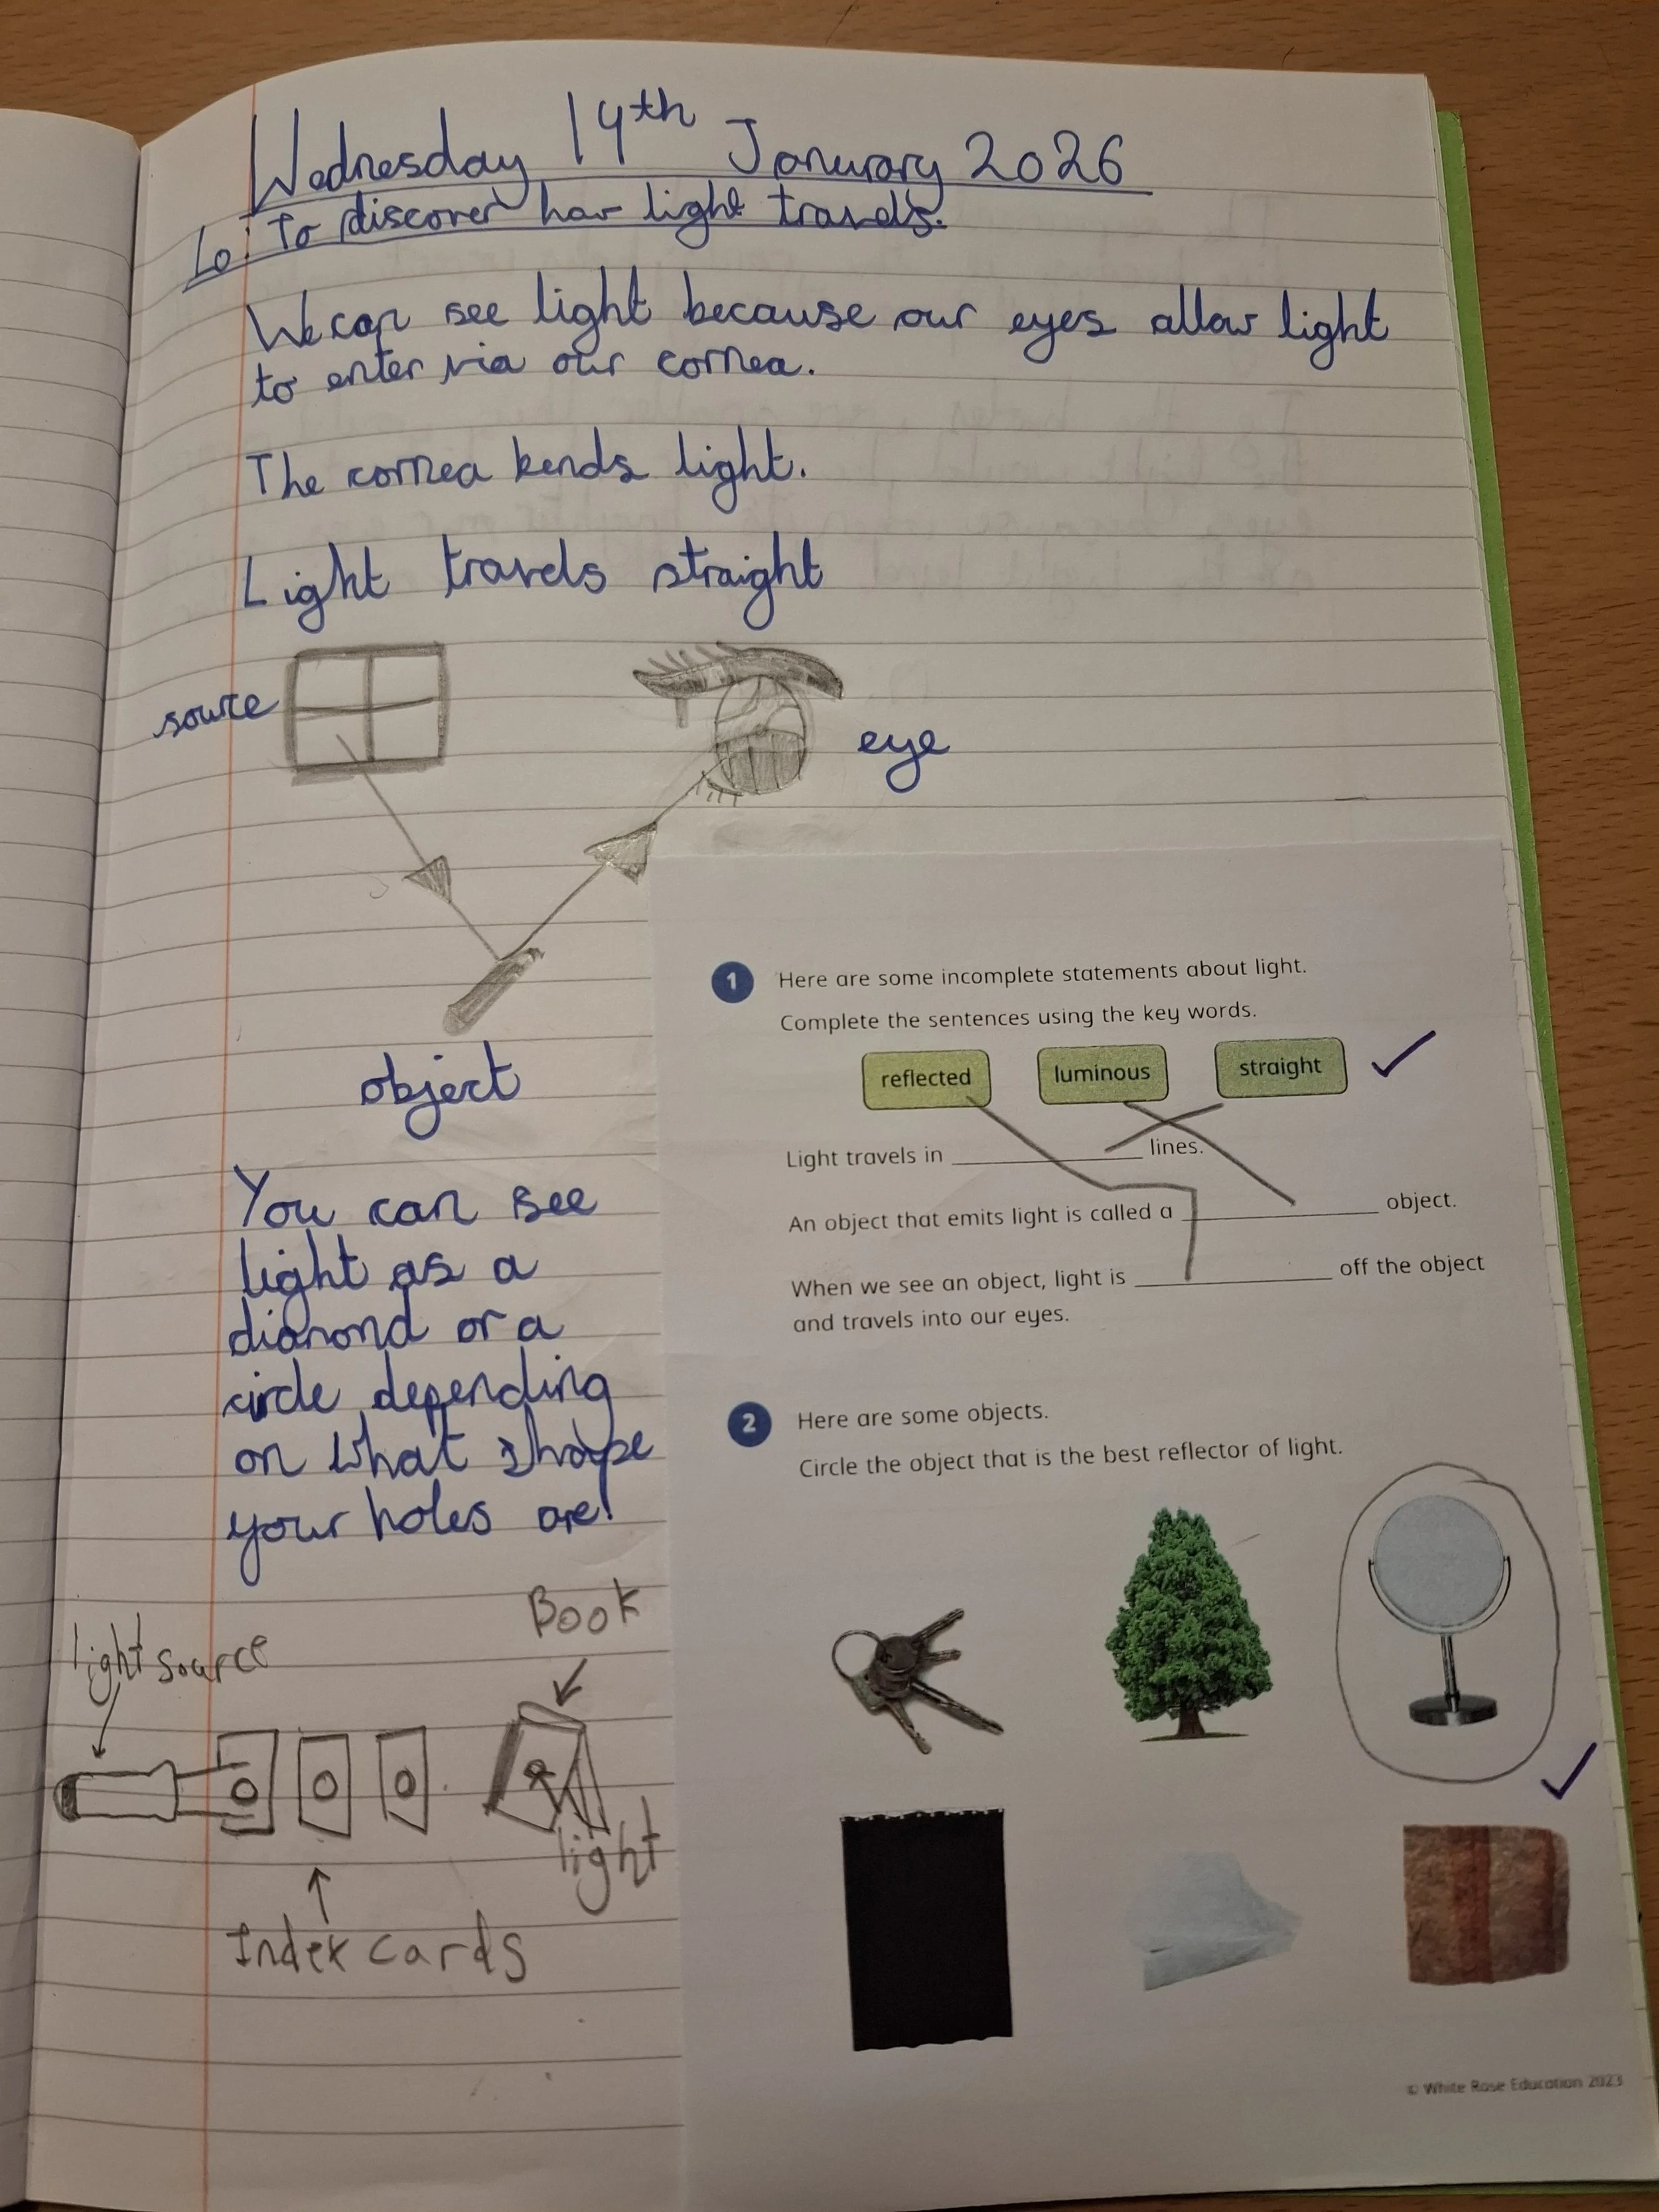 Wednesday 14th January 2026
Lo: To discover how light travels.
We can see light because our eyes allow light
to enter via our cornea.
The cornea bends light.
Light travels straight
source
eye
object
You can see
light as a
diamond or a
circle depending
on what shape
your holes are!
light source
Book
light
Index cards
1
Here are some incomplete statements about light.
Complete the sentences using the key words.
reflected
luminous
straight
Light travels in ____________ lines.
An object that emits light is called a ____________ object.
When we see an object, light is ____________ off the object
and travels into our eyes.
2
Here are some objects.
Circle the object that is the best reflector of light.
© White Rose Education 2023